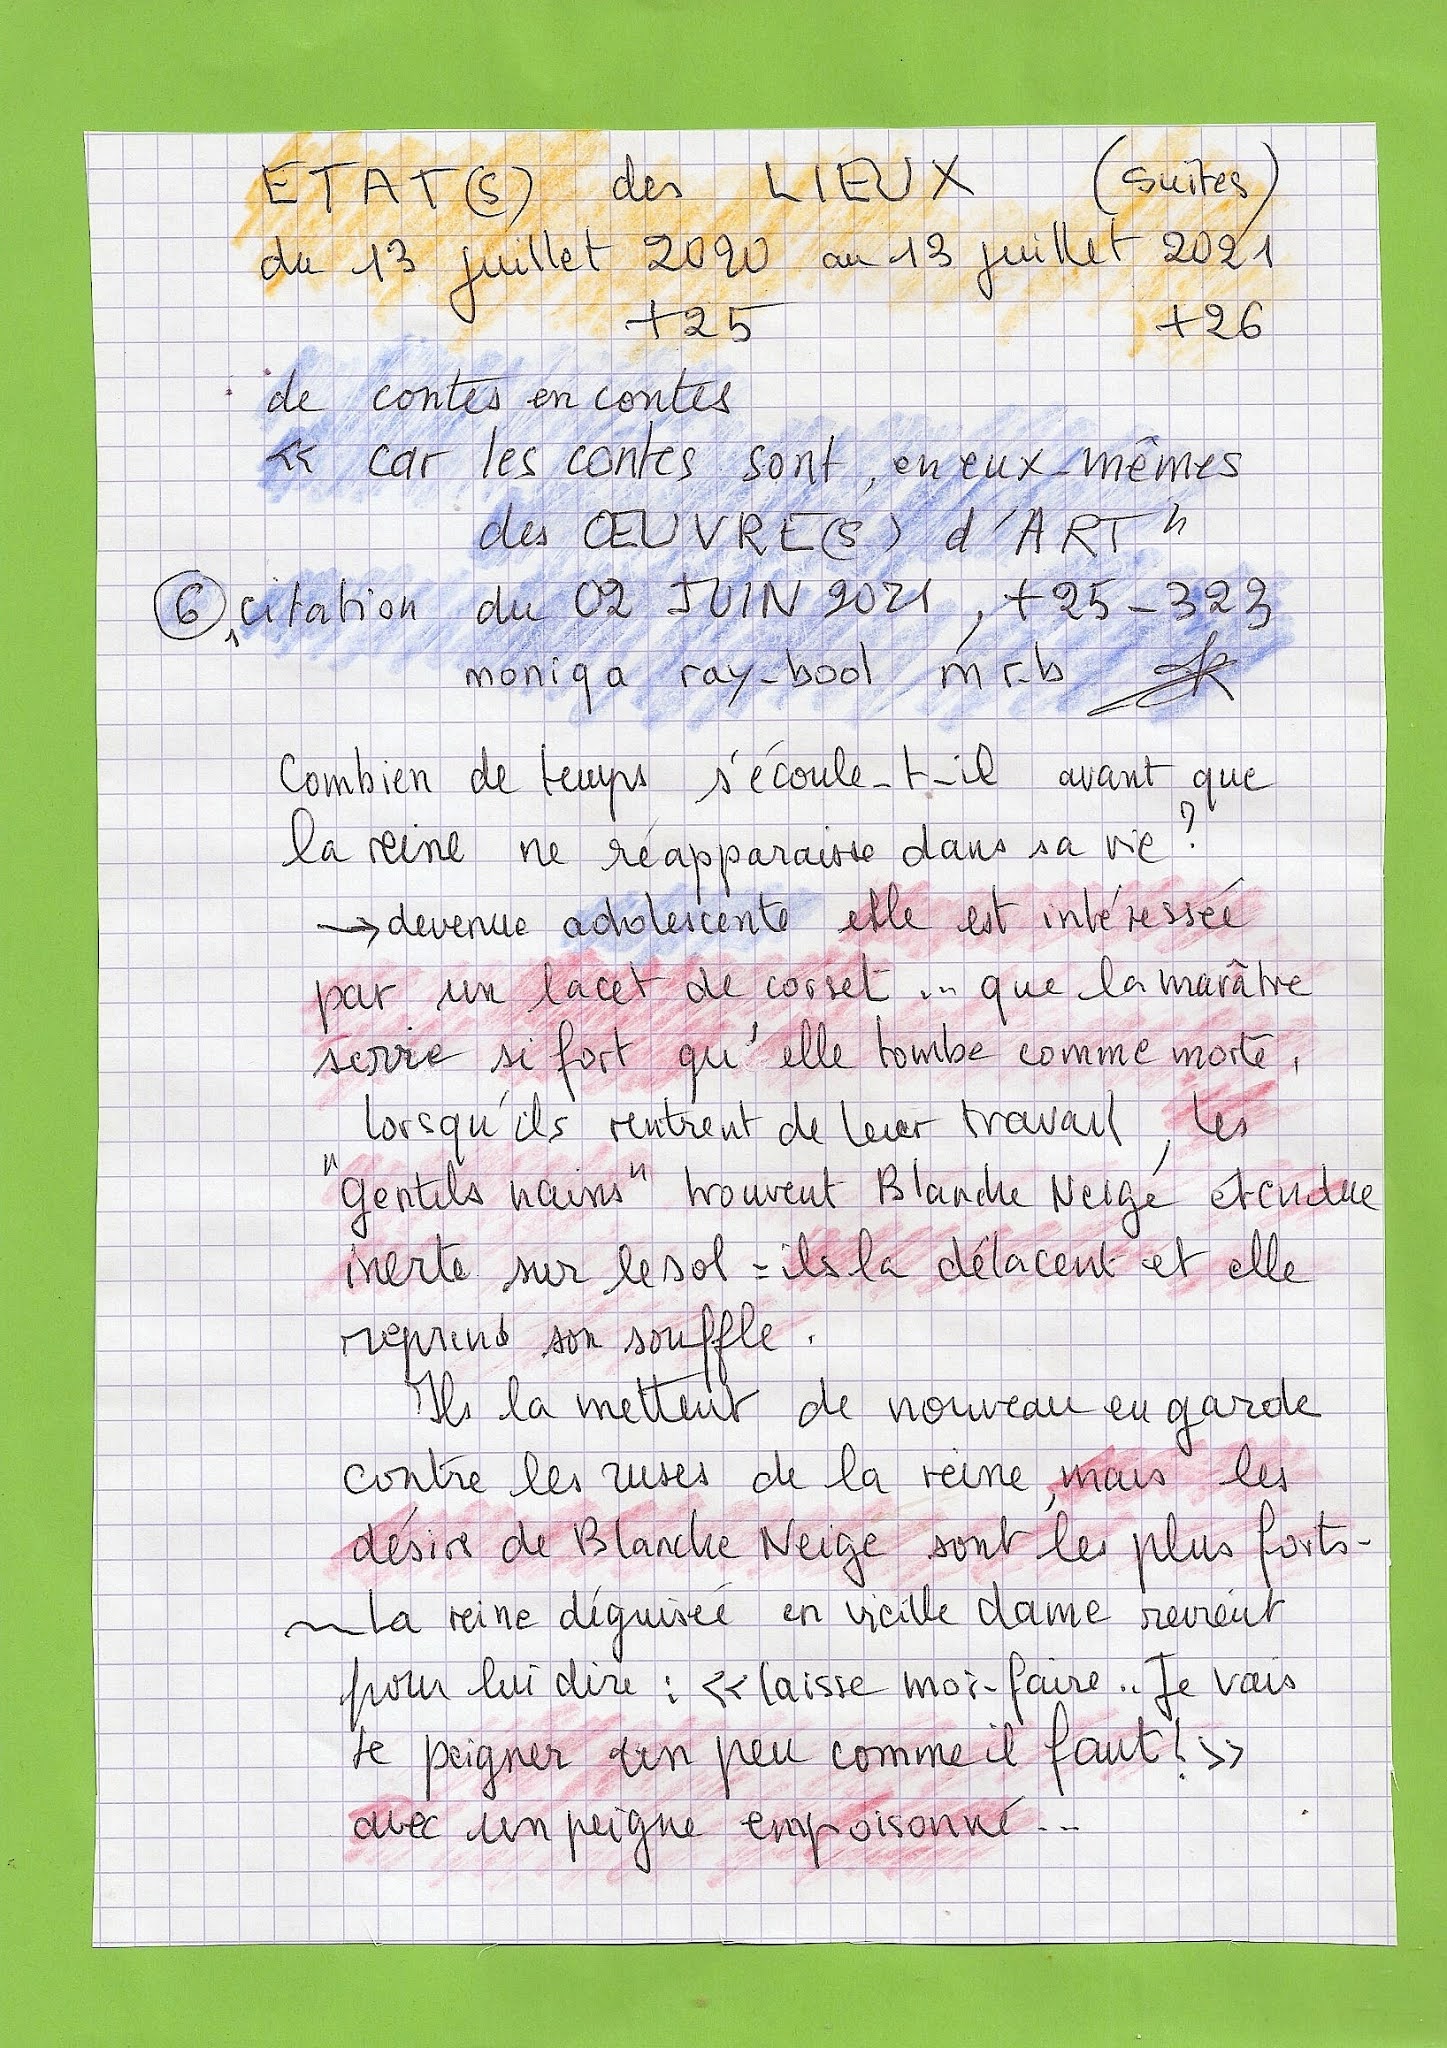 ETAT(S) des LIEUX (suites)
du 13 juillet 2020 au 13 juillet 2021
+25 +26
de contes en contes
« car les contes sont, en eux-mêmes
des ŒUVRE(S) d'ART "
6, citation du 02 JUIN 2021, +25-323
moniqa ray-bool m r-b
Combien de temps s'écoule-t-il avant que
la reine ne réapparaisse dans sa vie ?
→ devenue adolescente elle est intéressée
par un lacet de corset ... que la marâtre
serre si fort qu'elle tombe comme morte.
lorsqu'ils rentrent de leur travail, les
"gentils nains" trouvent Blanche Neige étendue
inerte sur le sol = ils la délacent et elle
reprend son souffle.
Ils la mettent de nouveau en garde
contre les ruses de la reine, mais les
désirs de Blanche Neige sont les plus forts-
La reine déguisée en vieille dame revient
pour lui dire : « laisse moi-faire .. Je vais
te peigner un peu comme il faut ! »
avec un peigne empoisonné ...